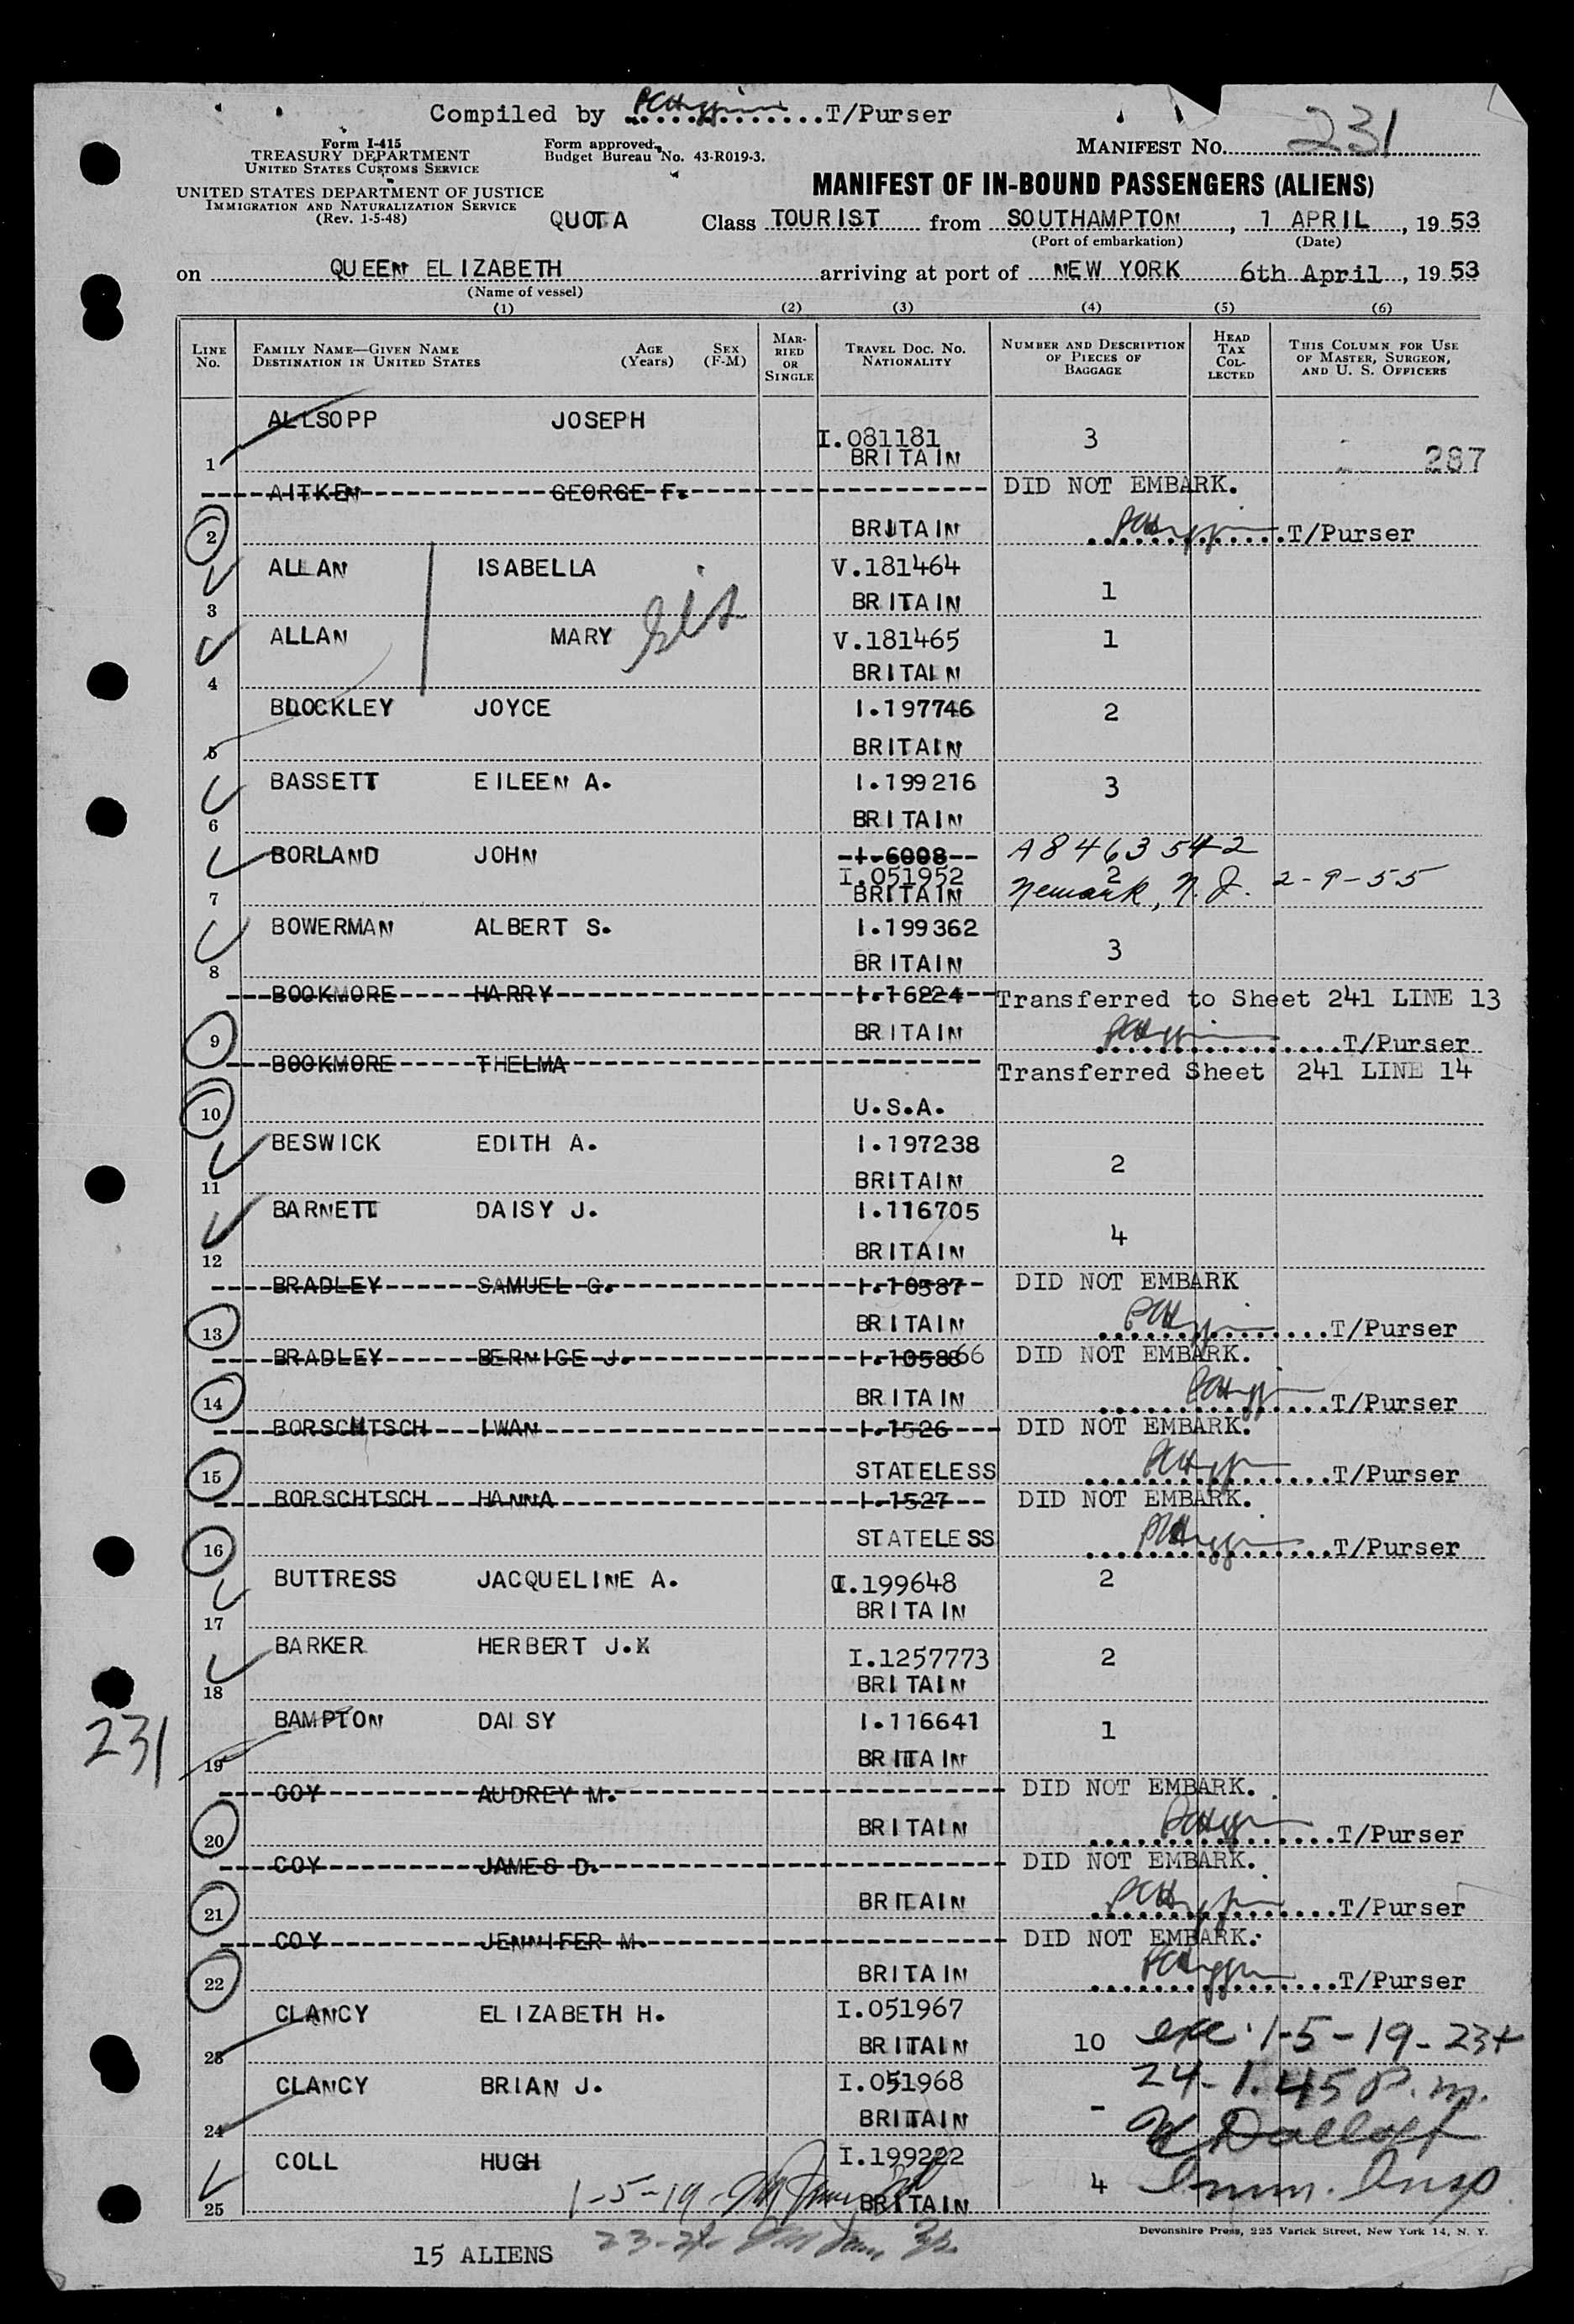 Compiled by ..............T/Purser
Form I-415
TREASURY DEPARTMENT
UNITED STATES CUSTOMS SERVICE
Form approved.
Budget Bureau No. 43-R019-3.
MANIFEST NO. 231
UNITED STATES DEPARTMENT OF JUSTICE
IMMIGRATION AND NATURALIZATION SERVICE
(Rev. 1-5-48)
MANIFEST OF IN-BOUND PASSENGERS (ALIENS)
QUOTA Class TOURIST from SOUTHAMPTON, 1 APRIL, 1953
(Port of embarkation) (Date)
on QUEEN ELIZABETH arriving at port of NEW YORK 6th April, 1953
(Name of vessel)
(1) (2) (3) (4) (5) (6)
LINE NO. FAMILY NAME—GIVEN NAME DESTINATION IN UNITED STATES AGE (Years) SEX (F-M) MARRIED OR SINGLE TRAVEL DOC. NO. NATIONALITY NUMBER AND DESCRIPTION OF PIECES OF BAGGAGE HEAD TAX COLLECTED THIS COLUMN FOR USE OF MASTER, SURGEON, AND U. S. OFFICERS
ALLSOPP JOSEPH I.081181 3
1 BRITAIN 287
AITKEN GEORGE F. DID NOT EMBARK.
2 BRITAIN T/Purser
ALLAN ISABELLA V.181464 1
3 BRITAIN
sis
ALLAN MARY V.181465 1
4 BRITAIN
BLOCKLEY JOYCE I.197746 2
5 BRITAIN
BASSETT EILEEN A. I.199216 3
6 BRITAIN
BORLAND JOHN I.6008 A8463542
I.051952 2
7 BRITAIN Newark, N.J. 2-9-55
BOWERMAN ALBERT S. I.199362 3
8 BRITAIN
BOOKMORE HARRY I.16224 Transferred to Sheet 241 LINE 13
9 BRITAIN T/Purser
BOOKMORE THELMA Transferred Sheet 241 LINE 14
10 U.S.A.
BESWICK EDITH A. I.197238 2
11 BRITAIN
BARNETT DAISY J. I.116705 4
12 BRITAIN
BRADLEY SAMUEL G. I.10587 DID NOT EMBARK
13 BRITAIN T/Purser
BRADLEY BERNICE J. I.1058866 DID NOT EMBARK.
14 BRITAIN T/Purser
BORSCHTSCH IWAN I.1526 DID NOT EMBARK.
15 STATELESS T/Purser
BORSCHTSCH HANNA I.1527 DID NOT EMBARK.
16 STATELESS T/Purser
BUTTRESS JACQUELINE A. I.199648 2
17 BRITAIN
BARKER HERBERT J.K I.1257773 2
18 BRITAIN
231
BAMPTON DAISY I.116641 1
19 BRITAIN
COY AUDREY M. DID NOT EMBARK.
20 BRITAIN T/Purser
COY JAMES D. DID NOT EMBARK.
21 BRITAIN T/Purser
COY JENNIFER M. DID NOT EMBARK.
22 BRITAIN T/Purser
CLANCY ELIZABETH H. I.051967
23 BRITAIN 10 exc. 1-5-19-23+
CLANCY BRIAN J. I.051968 24-1.45 P.m.
24 BRITAIN -
COLL HUGH I.199222 4 Imm. Insp
25 1-5-19- BRITAIN
23-24
Devonshire Press, 225 Varick Street, New York 14, N. Y.
15 ALIENS